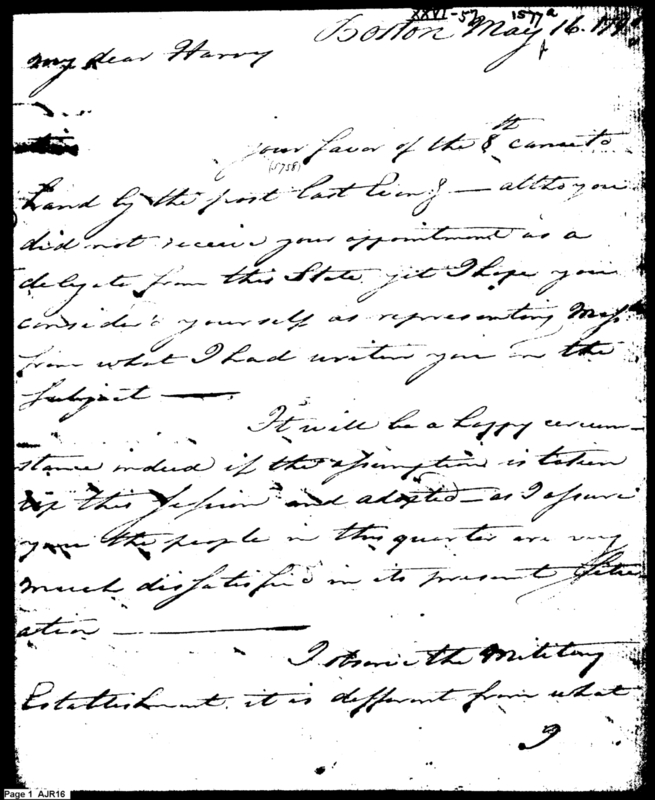 XXVI-57 1577a
Boston May 16. 179
My dear Harry
your favor of the 8th came to
(5758)
hand by the post last Even'g — altho you
did not receive your appointment as a
delegate from this State yet I hope you
consider'd yourself as representing Mass
from what I had written you on the
Subject —
It will be a happy circum-
stance indeed if the assumption is taken
up this Session and adopted — as I assure
you the people in this quarter are very
much dissatisfied in its present Situ
ation —
I observe the Military
Establishment. it is different from what
I
Page 1 AJR16